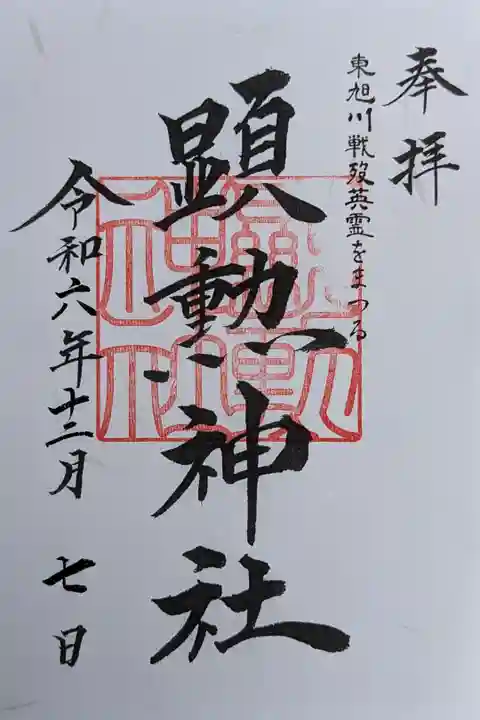 奉拝
東旭川戦歿英霊をまつる
顕勲神社
令和六年十二月 七日